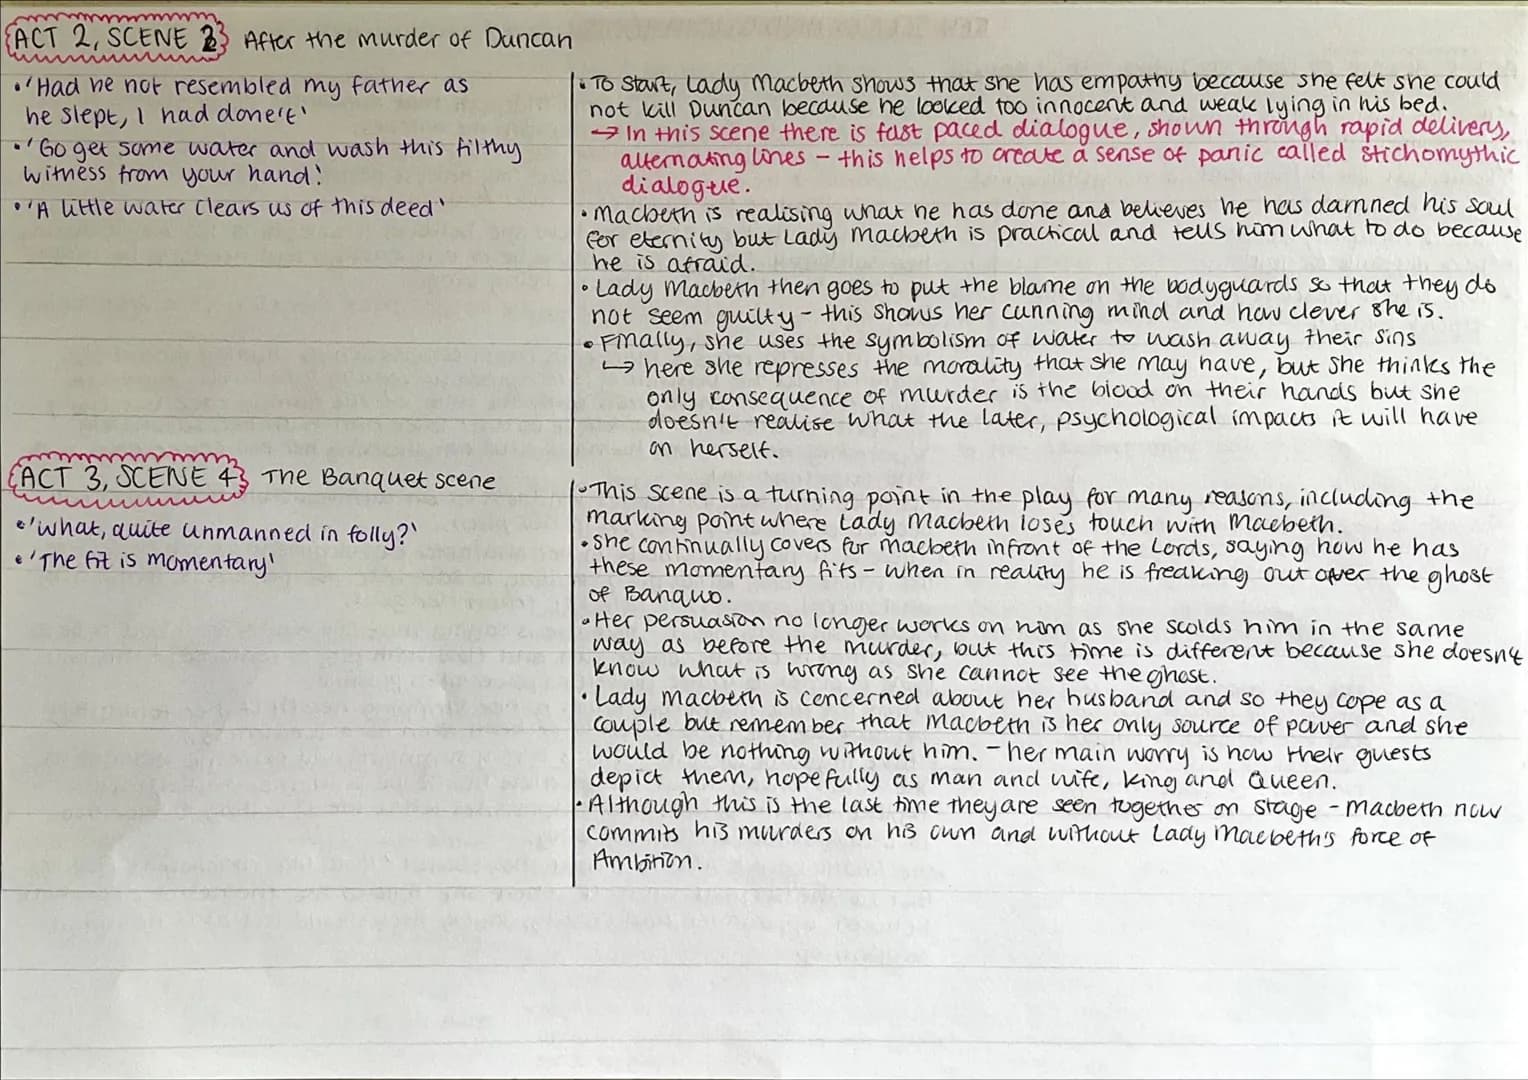 ACT 2, SCENE 2 After the murder of Duncan
•'Had he not resembled my father as
he slept, I had done't'
•'Go get some water and wash this filthy
witness from your hand!'
•'A little water clears us of this deed'
• To start, Lady Macbeth shows that she has empathy because she felt she could
not kill Duncan because he looked too innocent and weak lying in his bed.
→ In this scene there is fast paced dialogue, shown through rapid delivery,
alternating lines – this helps to create a sense of panic called stichomythic
dialogue.
• Macbeth is realising what he has done and believes he has damned his soul
for eternity but Lady Macbeth is practical and tells him what to do because
he is afraid.
• Lady Macbeth then goes to put the blame on the bodyguards so that they do
not seem guilty – this shows her cunning mind and how clever she is.
• Finally, she uses the symbolism of water to wash away their sins
↳ here she represses the morality that she may have, but she thinks the
only consequence of murder is the blood on their hands but she
doesn't realise what the later, psychological impacts it will have
on herself.
ACT 3, SCENE 4 The Banquet scene
•'What, quite unmanned in folly?'
•'The fit is momentary'
• This scene is a turning point in the play for many reasons, including the
marking point where Lady Macbeth loses touch with Macbeth.
• She continually covers for Macbeth infront of the Lords, saying how he has
these momentary fits – when in reality he is freaking out over the ghost
of Banquo.
• Her persuasion no longer works on him as she scolds him in the same
way as before the murder, but this time is different because she doesn't
know what is wrong as she cannot see the ghost.
• Lady Macbeth is concerned about her husband and so they cope as a
couple but remember that Macbeth is her only source of power and she
would be nothing without him. – her main worry is how their guests
depict them, hopefully as man and wife, King and Queen.
• Although this is the last time they are seen together on stage – Macbeth now
commits his murders on his own and without Lady Macbeth's force of
Ambition.